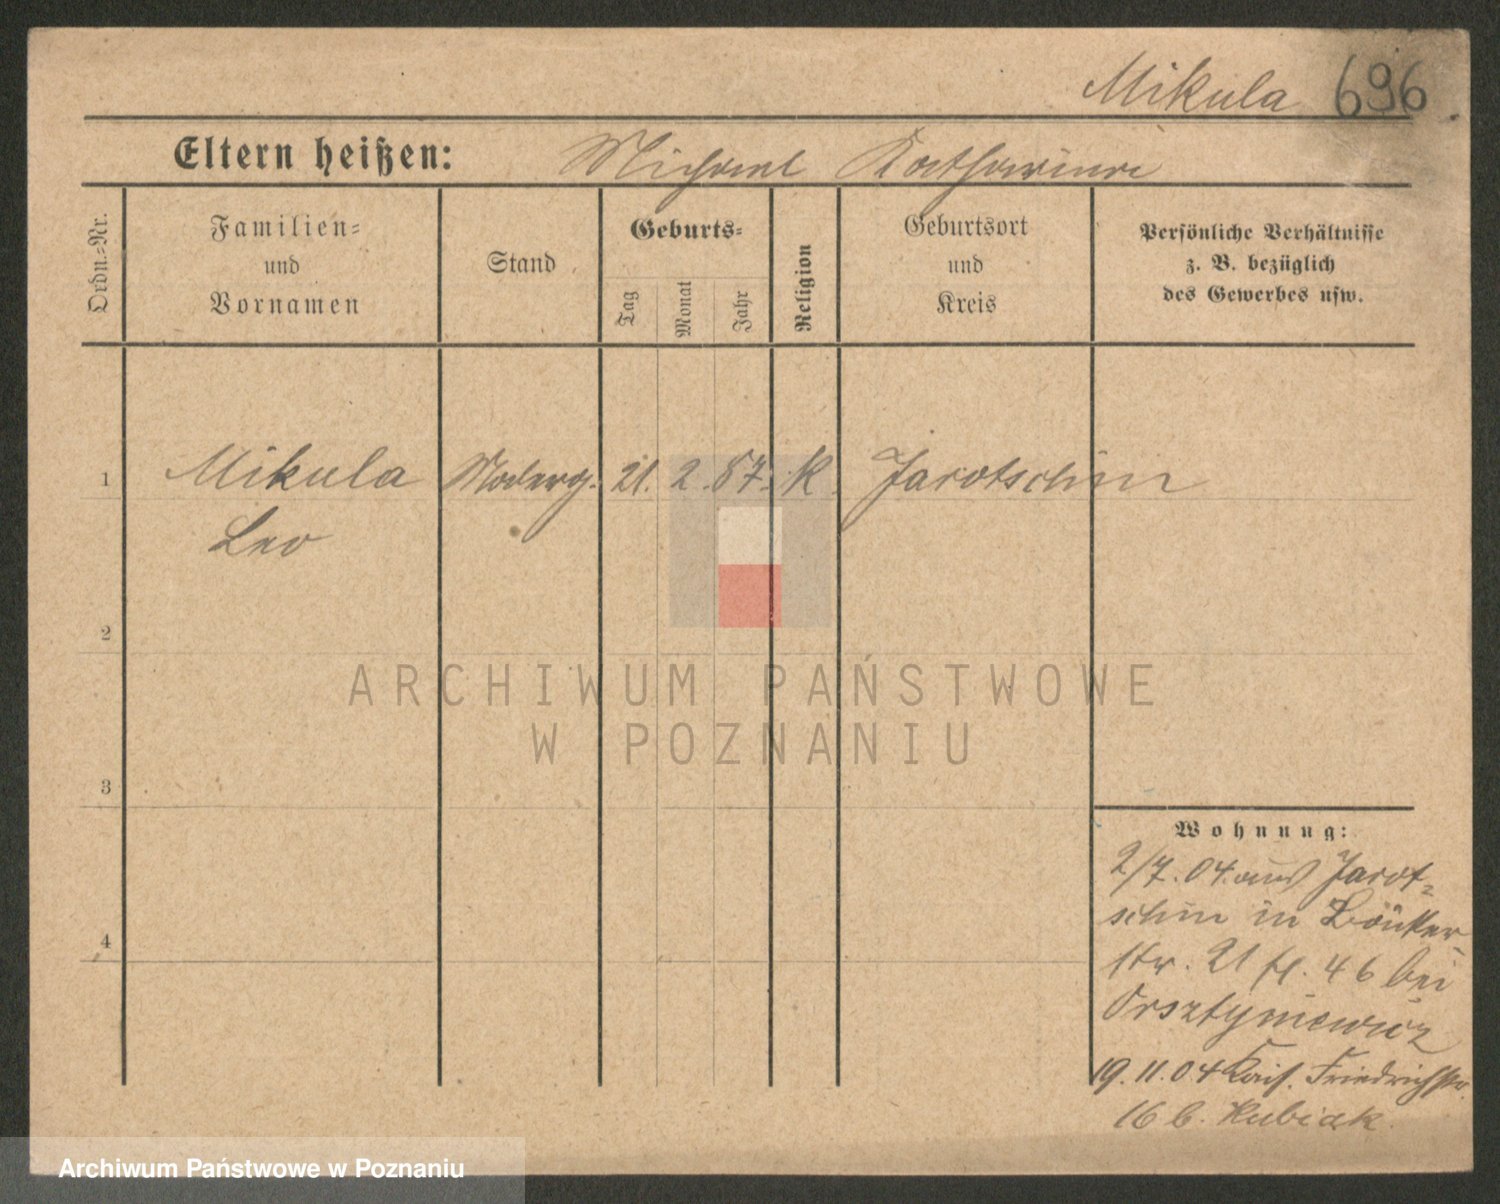 Mikula 696
Eltern heißen: Michael Katharina
Ordn.-Nr.
Familien-
und
Vornamen
Stand
Geburts-
Tag
Monat
Jahr
Religion
Geburtsort
und
Kreis
Persönliche Verhältnisse
z. B. bezüglich
des Gewerbes usw.
1 Mikula 21. 2. 87. K. Jarotschin
Leo
2
3
4
Wohnung:
2/7. 04. aus Jarot-
schin in
str. 21 46 bei
19. 11. 04 Kais. Friedrichstr.
16 b. Kubiak.
ARCHIWUM PAŃSTWOWE
W POZNANIU
Archiwum Państwowe w Poznaniu